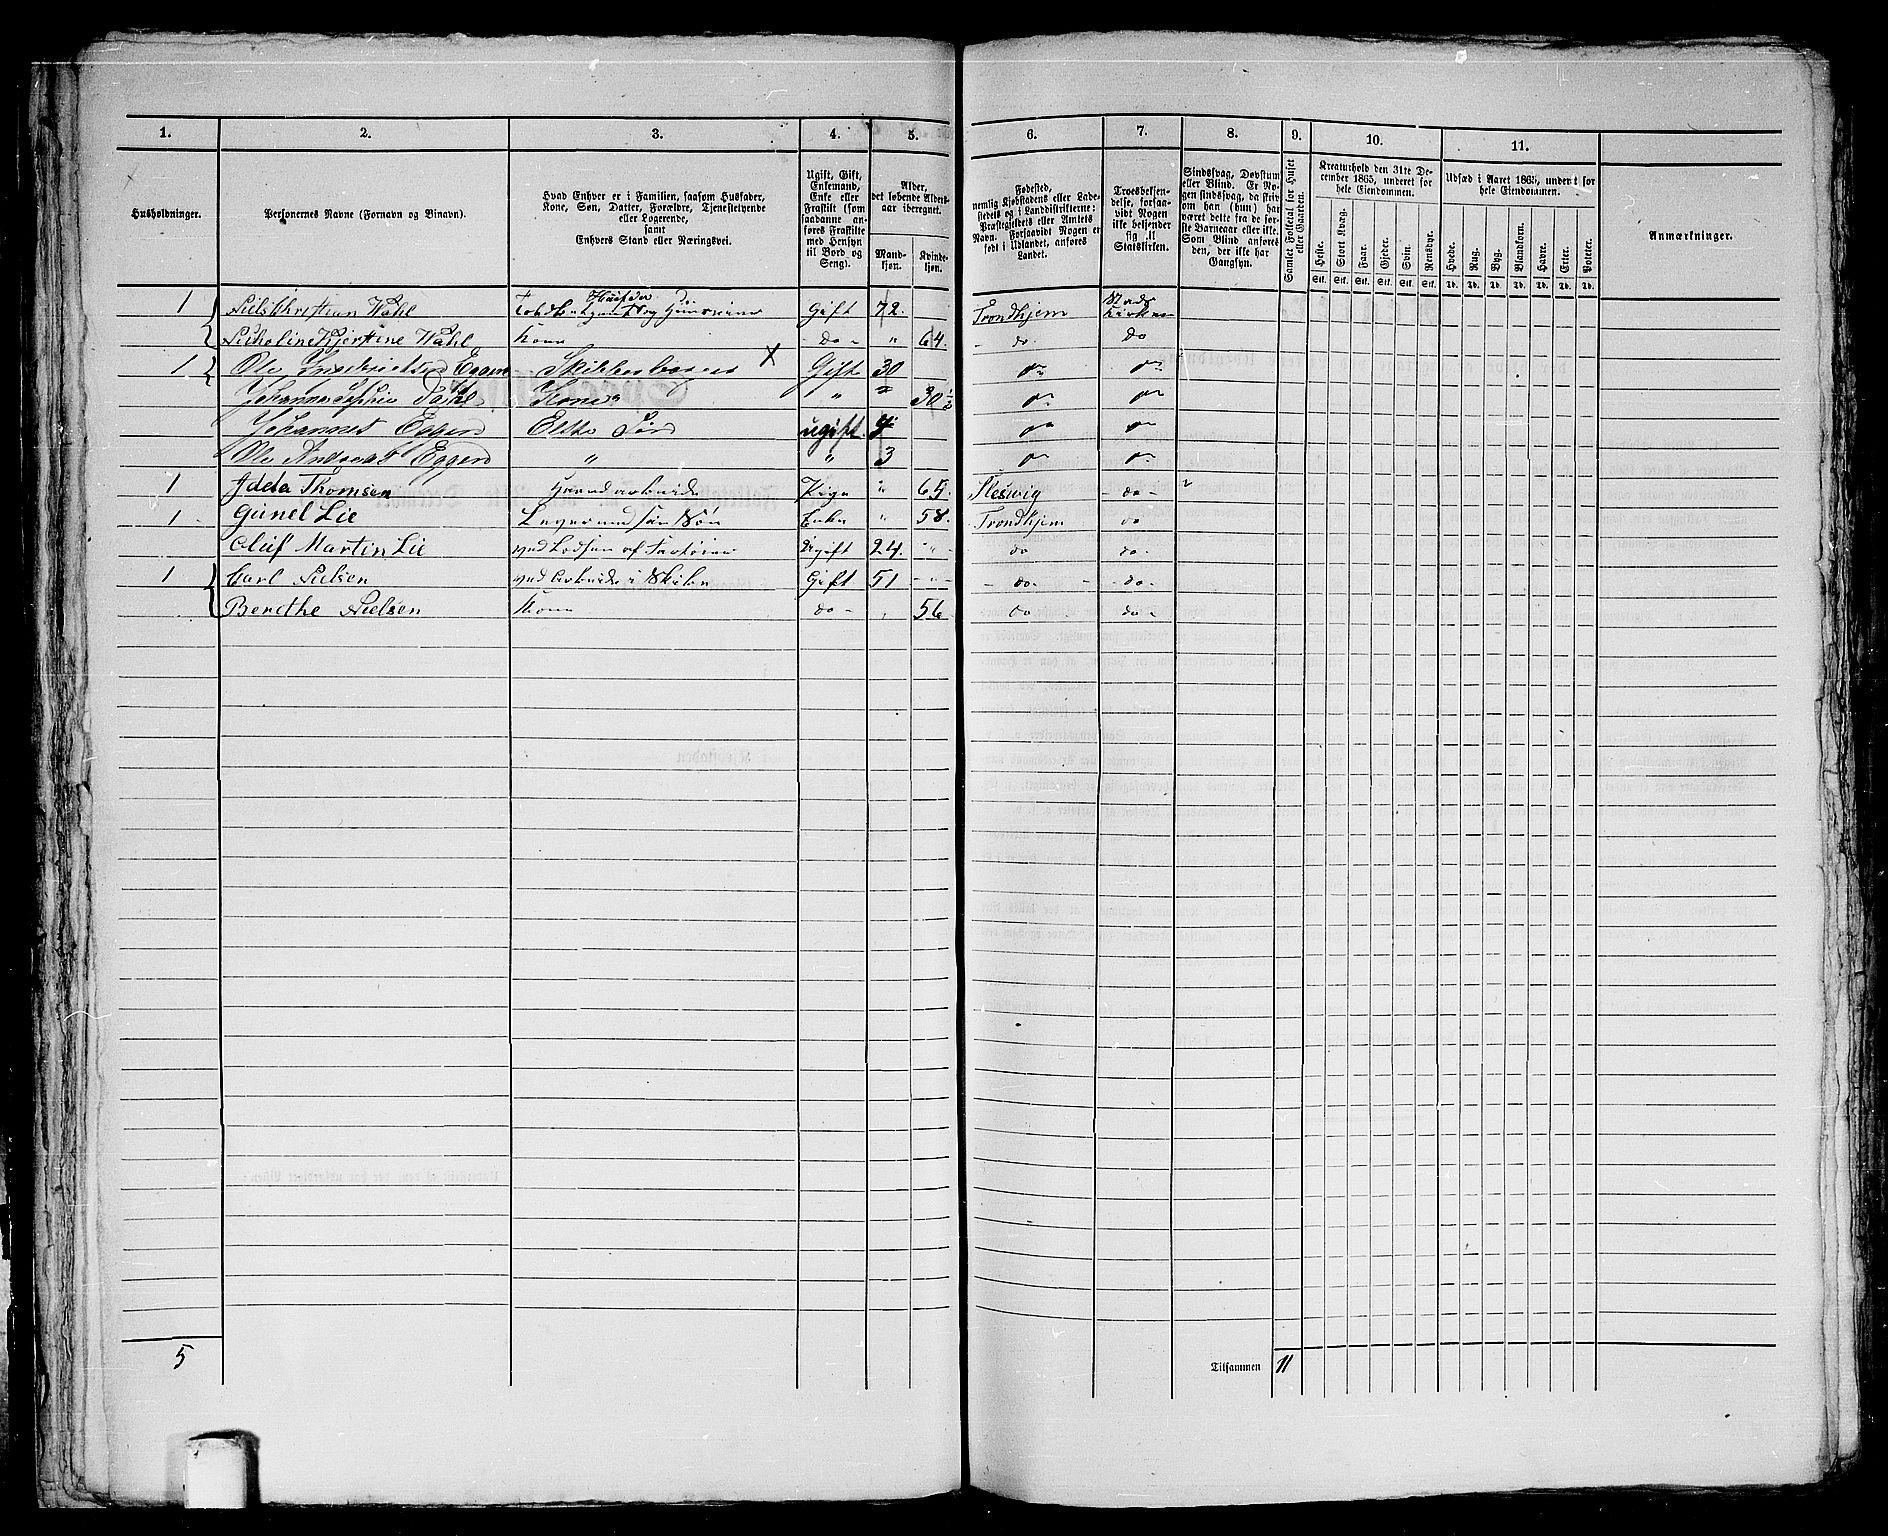 1. 2. 3. 4. 5. 6. 7. 8. 9. 10. 11.
Husholdninger.
Personernes Navne (Fornavn og Binavn).
Hvad Enhver er i Familien, saasom Husfader,
Kone, Søn, Datter, Forældre, Tjenestetyende
eller Logerende,
samt
Enhvers Stand eller Næringsvei.
Ugift, Gift,
Enkemand,
Enke eller
Fraskilt (som
saadanne an-
føres Fraskilte
med Hensyn
til Bord og
Seng).
Alder,
det løbende Alders-
aar iberegnet.
Mand-
kjøn.
Kvinde-
kjøn.
Fødested,
nemlig Kjøbstadens eller Lade-
stedets og i Landdistrikterne:
Præstegjeldets eller Amtets
Navn. Forsaavidt Nogen er
født i Udlandet, anføres
Landet.
Troesbekjen-
delse, forsaa-
vidt Nogen
ikke bekjender
sig til
Statskirken.
Sindssvag, Døvstum
eller Blind. Er No-
gen sindssvag, da skriv
om han (hun) har
været dette fra de før-
ste Barneaar eller ikke.
Som Blind anføres
den, der ikke har
Gangsyn.
Samlet Folketal for Huset
eller Gaarden.
Kreaturhold den 31te De-
cember 1865, underet for
hele Eiendommen.
Heste. Stort Kvæg. Faar. Gjeder. Svin. Rensdyr.
Stk. Stk. Stk. Stk. Stk. Stk.
Udsæd i Aaret 1865, underet for
hele Eiendommen.
Hvede. Rug. Byg. Blandkorn. Havre. Erter. Poteter.
Td. Td. Td. Td. Td. Td. Td.
Anmærkninger.
1 Nils Christian Wahl Husfader Gift 72. Trondhjem Stads Kirken
Nicholine Kjerstine Wahl Kone do - " 64. - do. do
1 Ole Eggen X Gift 30 do do
Johanna Sophie Dahl Kone " " 30 do do
Johannes Eggen Søn ugift do do
Ole Andreas Eggen " " 3 do do
1 Adela Thomsen Haandarbeide Pige " 65. Slesvig - do -
1 Gunel Lie Lever med sin Søn Enke " 58. Trondhjem do
Oluf Martin Lie Ugift 24. - " - do do.
1 Carl Nielsen ved Arbeide i Gift 51 - " - - do - - do -
Berethe Nielsen Kone do - " 56. do do -
5
Tilsammen 11